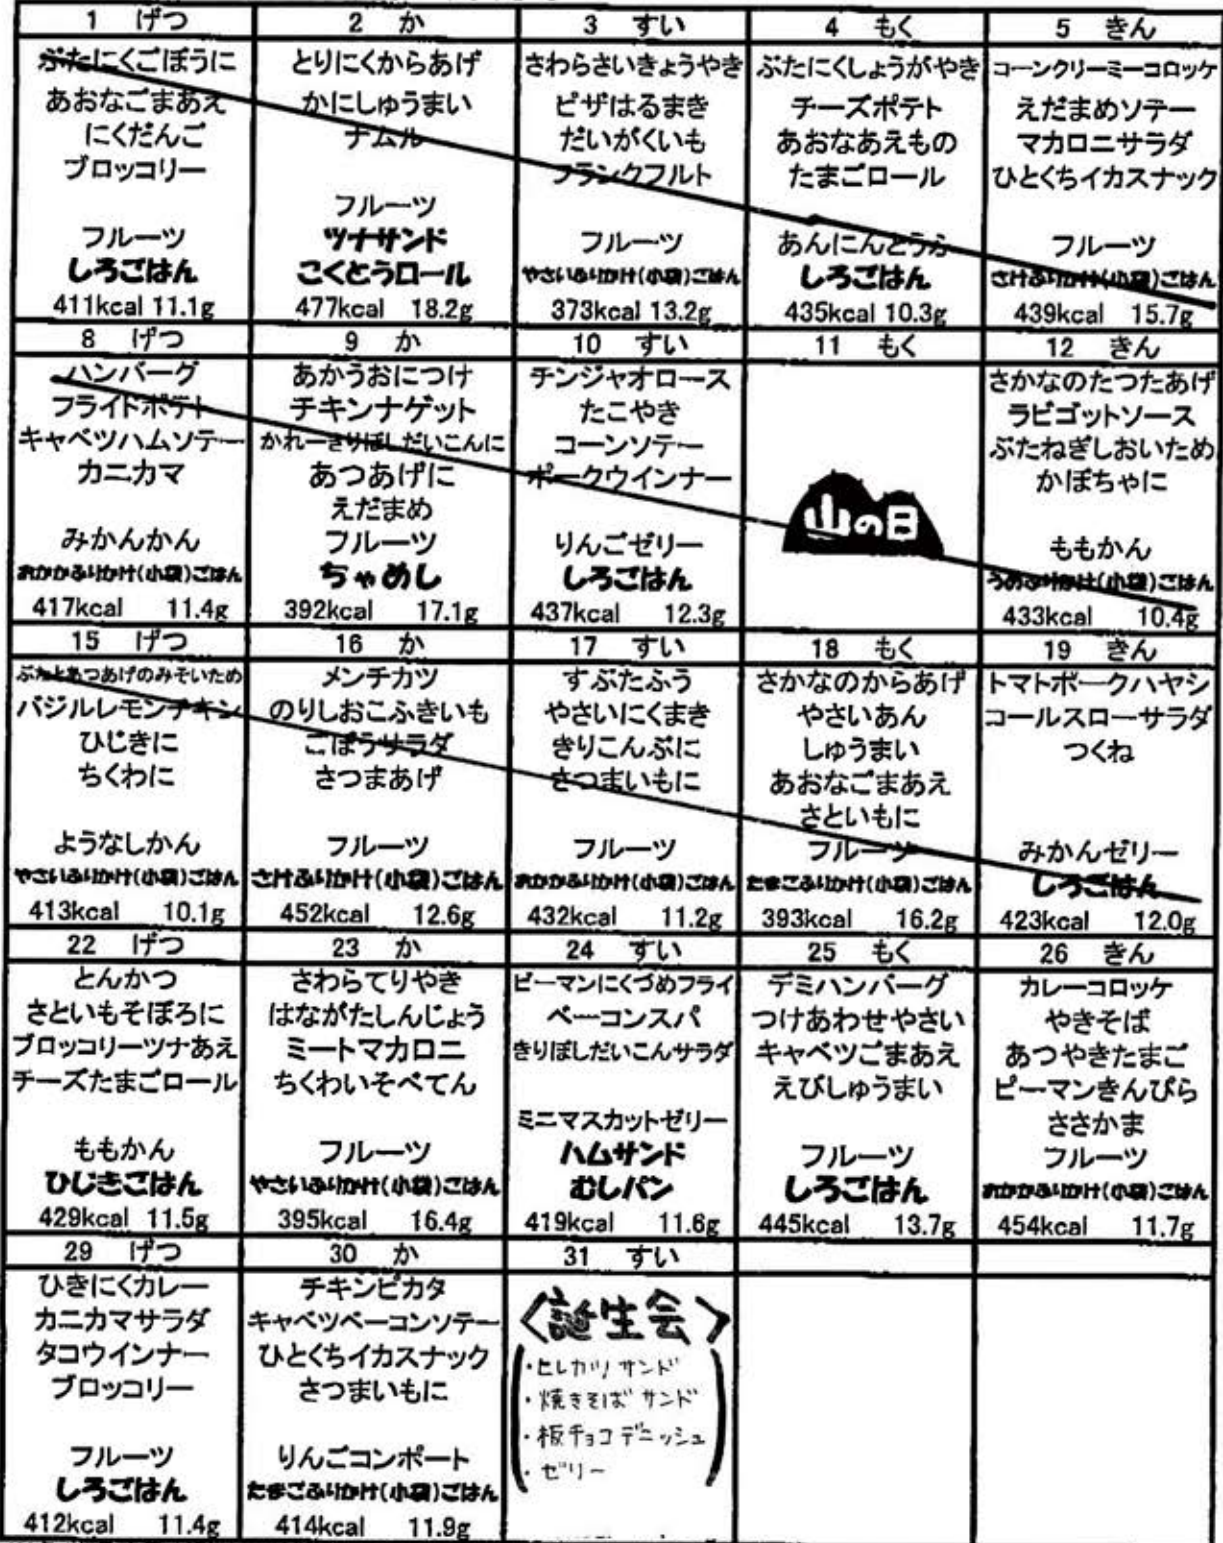 1 げつ
ぶたにくごぼうに
あおなごまあえ
にくだんご
ブロッコリー
フルーツ
しろごはん
411kcal 11.1g
2 か
とりにくからあげ
かにしゅうまい
ナムル
フルーツ
ツナサンド
こくとうロール
477kcal 18.2g
3 すい
さわらさいきょうやき
ピザはるまき
だいがくいも
フランクフルト
フルーツ
やさいふりかけ(小袋)ごはん
373kcal 13.2g
4 もく
ぶたにくしょうがやき
チーズポテト
あおなあえもの
たまごロール
あんにんどうふ
しろごはん
435kcal 10.3g
5 きん
コーンクリーミーコロッケ
えだまめソテー
マカロニサラダ
ひとくちイカスナック
フルーツ
さけふりかけ(小袋)ごはん
439kcal 15.7g
8 げつ
ハンバーグ
フライドポテト
キャベツハムソテー
カニカマ
みかんかん
おかかふりかけ(小袋)ごはん
417kcal 11.4g
9 か
あかうおにつけ
チキンナゲット
かれーきりぼしだいこんに
あつあげに
えだまめ
フルーツ
ちゃめし
392kcal 17.1g
10 すい
チンジャオロース
たこやき
コーンソテー
ポークウインナー
りんごゼリー
しろごはん
437kcal 12.3g
11 もく
山の日
12 きん
さかなのたつたあげ
ラビゴットソース
ぶたねぎしおいため
かぼちゃに
ももかん
うめふりかけ(小袋)ごはん
433kcal 10.4g
15 げつ
ぶたとあつあげのみそいため
バジルレモンチキン
ひじきに
ちくわに
ようなしかん
やさいふりかけ(小袋)ごはん
413kcal 10.1g
16 か
メンチカツ
のりしおこふきいも
ごぼうサラダ
さつまあげ
フルーツ
さけふりかけ(小袋)ごはん
452kcal 12.6g
17 すい
すぶたふう
やさいにくまき
きりこんぶに
さつまいもに
フルーツ
おかかふりかけ(小袋)ごはん
432kcal 11.2g
18 もく
さかなのからあげ
やさいあん
しゅうまい
あおなごまあえ
さといもに
フルーツ
たまごふりかけ(小袋)ごはん
393kcal 16.2g
19 きん
トマトポークハヤシ
コールスローサラダ
つくね
みかんゼリー
しろごはん
423kcal 12.0g
22 げつ
とんかつ
さといもそぼろに
ブロッコリーツナあえ
チーズたまごロール
ももかん
ひじきごはん
429kcal 11.5g
23 か
さわらてりやき
はながたしんじょう
ミートマカロニ
ちくわいそべてん
フルーツ
やさいふりかけ(小袋)ごはん
395kcal 16.4g
24 すい
ピーマンにくづめフライ
ベーコンスパ
きりぼしだいこんサラダ
ミニマスカットゼリー
ハムサンド
むしパン
419kcal 11.6g
25 もく
デミハンバーグ
つけあわせやさい
キャベツごまあえ
えびしゅうまい
フルーツ
しろごはん
445kcal 13.7g
26 きん
カレーコロッケ
やきそば
あつやきたまご
ピーマンきんぴら
ささかま
フルーツ
おかかふりかけ(小袋)ごはん
454kcal 11.7g
29 げつ
ひきにくカレー
カニカマサラダ
タコウインナー
ブロッコリー
フルーツ
しろごはん
412kcal 11.4g
30 か
チキンピカタ
キャベツベーコンソテー
ひとくちイカスナック
さつまいもに
りんごコンポート
たまごふりかけ(小袋)ごはん
414kcal 11.9g
31 すい
〈誕生会〉
・ヒレカツサンド
・焼きそばサンド
・板チョコデニッシュ
・ゼリー